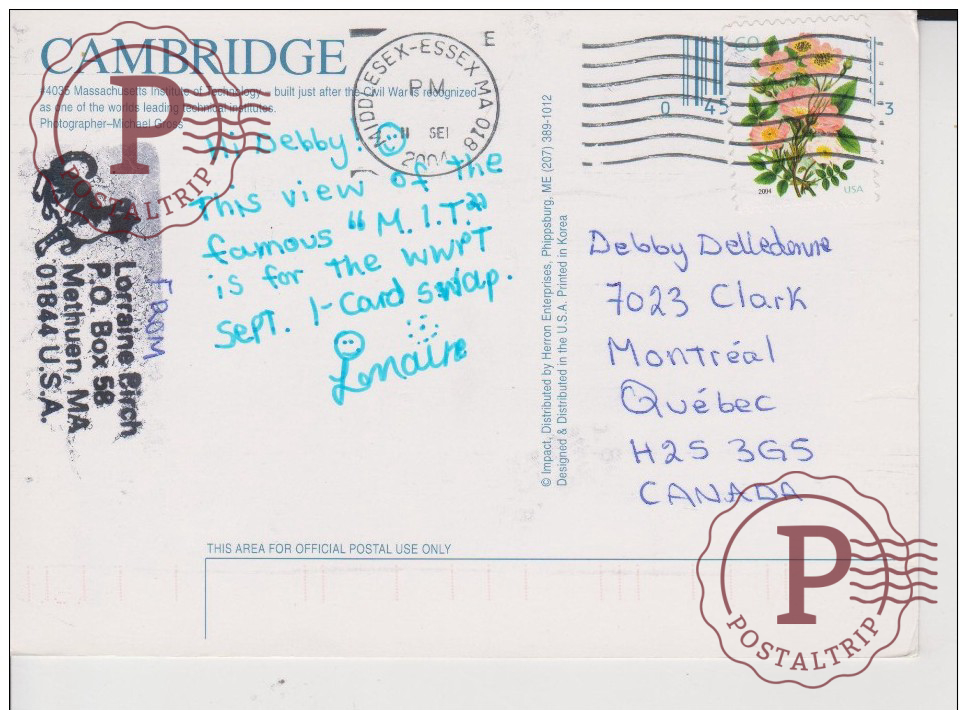 CAMBRIDGE
#4035 Massachusetts Institute of Technology - built just after the Civil War is recognized
as one of the worlds leading technical institutes.
Photographer–Michael Gross
MIDDLESEX-ESSEX MA 018
PM
2004
E
Hi Debby!
This view of the
famous "M.I.T."
is for the WWPT
Sept. 1-Card swap.
Lorraine
FROM
Lorraine Birch
P.O. Box 58
Methuen, MA
01844 U.S.A.
© Impact, Distributed by Herron Enterprises, Phippsburg, ME (207) 389-1012
Designed & Distributed in the U.S.A. Printed in Korea
0 45 3
60
2004 USA
Debby Delledonne
7023 Clark
Montréal
Québec
H2S 3G5
CANADA
THIS AREA FOR OFFICIAL POSTAL USE ONLY
P
POSTALTRIP
P
POSTALTRIP